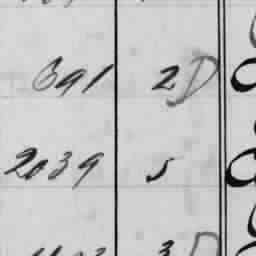 691 2D
2039 5